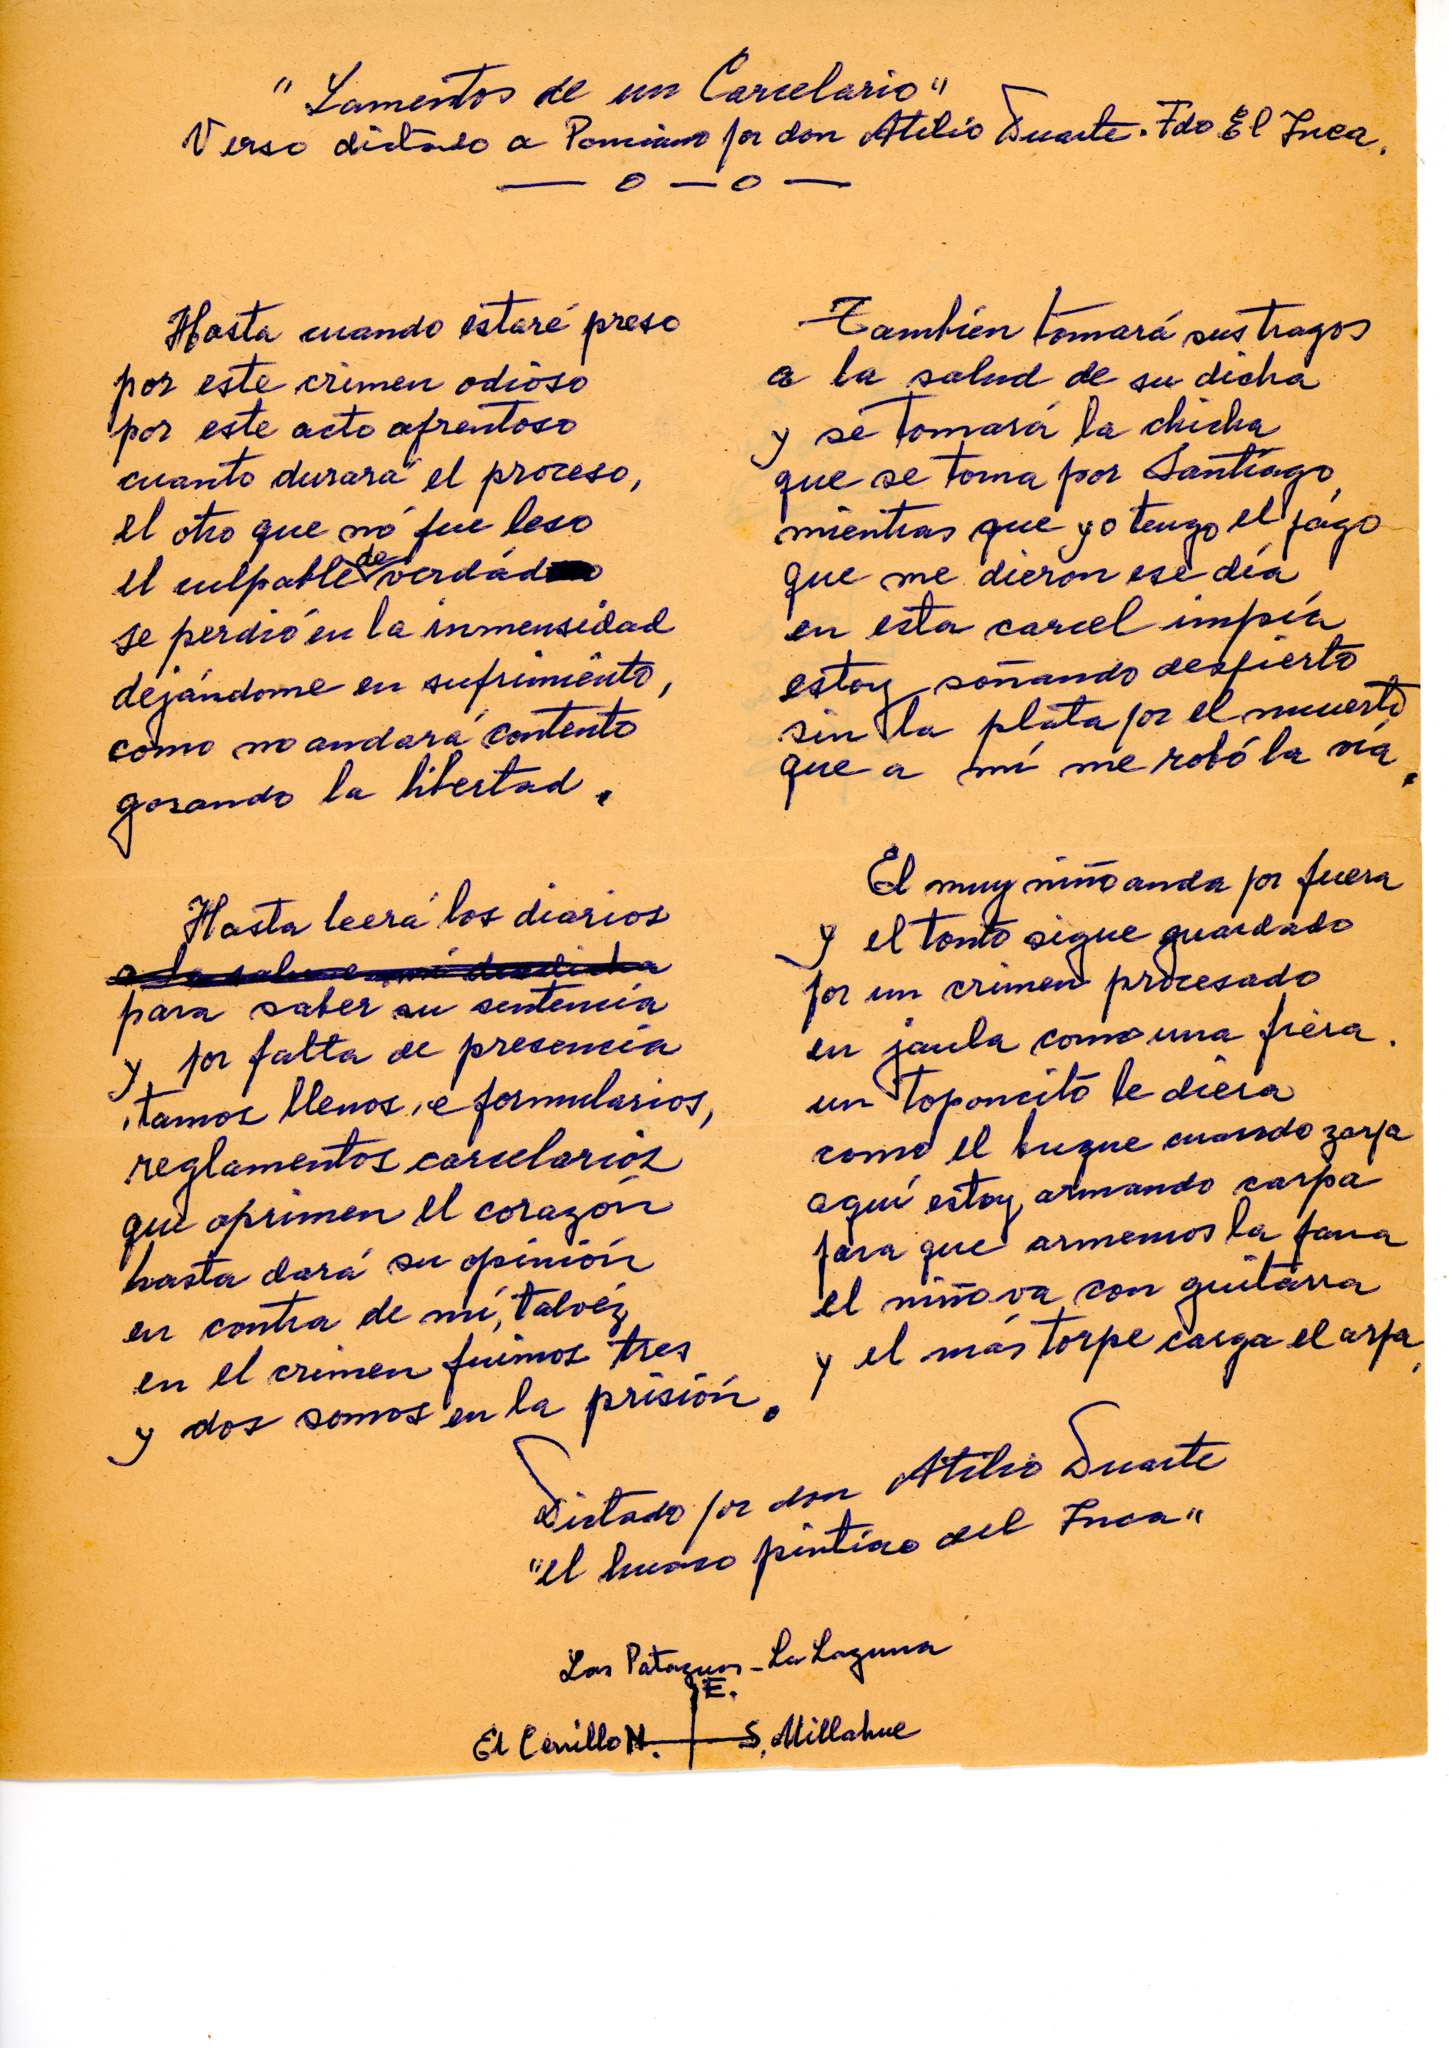 "Lamentos de un Carcelario"
Verso dictado a Ponciano por don Atilio Duarte. Fdo. El Inca.
Hasta cuando estaré preso
por este crimen odioso
por este acto afrentoso
cuanto durará el proceso,
el otro que nó fue leso
el culpable de verdád
se perdió en la inmensidad
dejándome en sufrimiento,
como no andará contento
gosando la libertad.
Hasta leerá los diarios
para saber su sentencia
y por falta de presencia
'tamos llenos 'e formularios,
reglamentos carcelarios
que oprimen el corazón
hasta dará su opinión
en contra de mí, talvéz
en el crimen fuimos tres
y dos somos en la prisión.
También tomará sus tragos
a la salud de su dicha
y se tomará la chicha
que se toma por Santiago,
mientras que yo tengo el pago
que me dieron ese día
en esta carcel impía
estoy soñando despierto
sin la plata por el muerto
que a mí me robó la vía.
El muy niño anda por fuera
y el tonto sigue guardado
por un crimen procesado
en jaula como una fiera.
un toponcito le diera
como el buque cuando zarpa
aquí estoy armando carpa
para que armemos la farra
el niño va con guitarra
y el más torpe carga el arpa.
Dictado por don Atilio Duarte
"el huaso pintiao del Inca"
Las Pataguas - La Laguna
E.
El Cerrillo N. S. Millahue